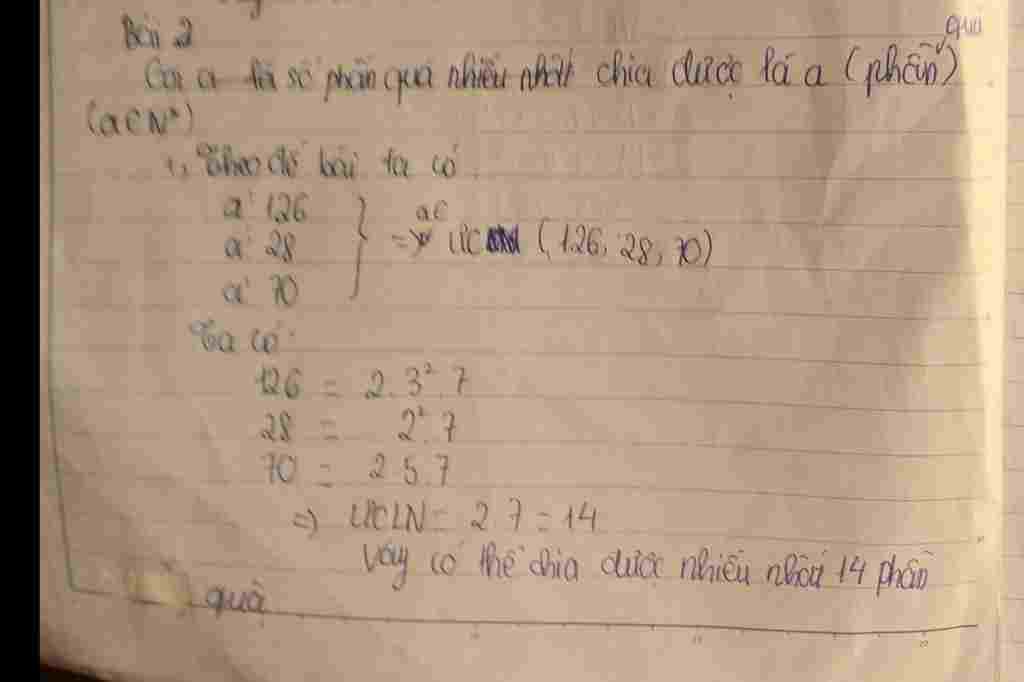 Bài 2
Gọi a là số phần quà nhiều nhất chia được là a (phần) quà
(a∈N*)
Theo đề bài ta có
a ⋮ 126
a ⋮ 28
a ⋮ 70
} => a∈ ƯC (126, 28, 70)
Ta có:
126 = 2.3².7
28 = 2².7
70 = 2.5.7
=> ƯCLN = 2.7 = 14
Vậy có thể chia được nhiều nhất 14 phần
quà